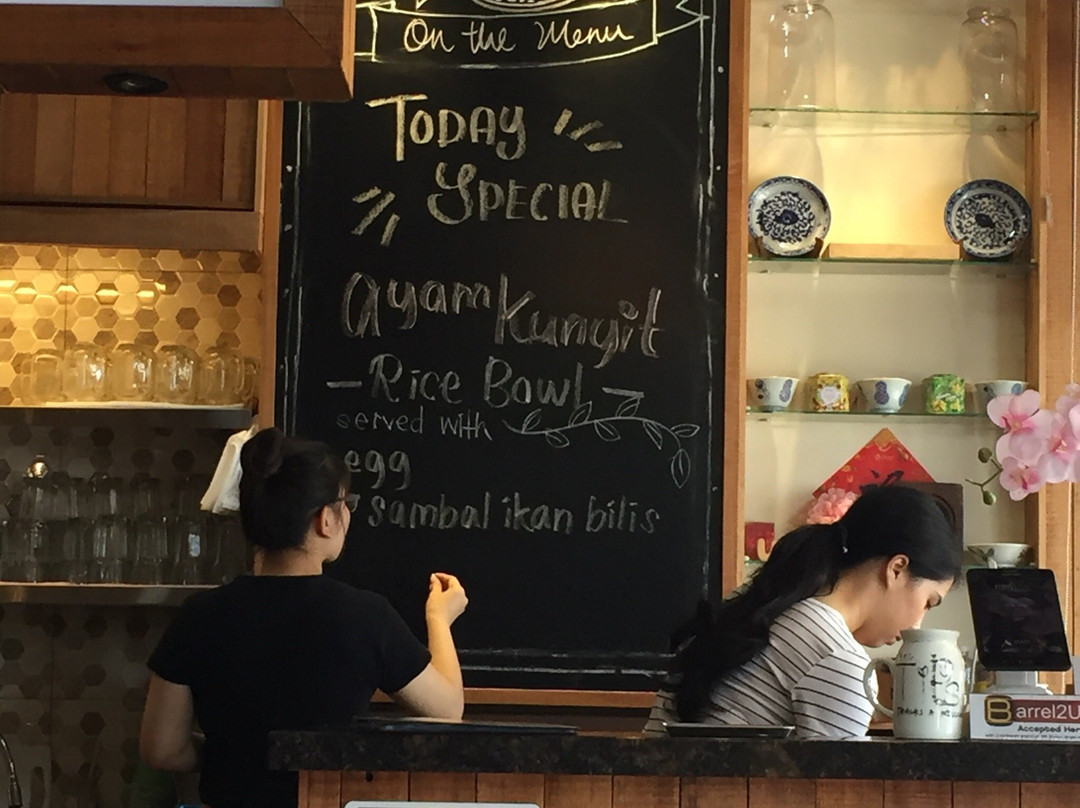 On the Menu
TODAY
SPECIAL
Ayam Kunyit
- Rice Bowl -
served with
egg
sambal ikan bilis
Barrel2U
Accepted Her